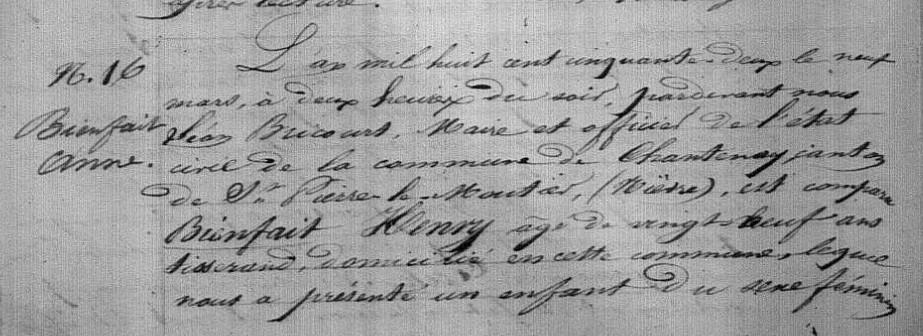 après lecture.
N. 16
Bienfait
Anne.
L'an mil huit cent cinquante-deux le neuf
mars, à deux heures du soir, pardevant nous
Jean Bricourt, Maire et officiel de l'état
civil de la commune de Chantenay canton
de St Pierre-le-Moutier, (Nièvre), est comparu
Bienfait Henry âgé de vingt-neuf ans
tisserand, domicilié en cette commune, lequel
nous a présenté un enfant du sexe féminin